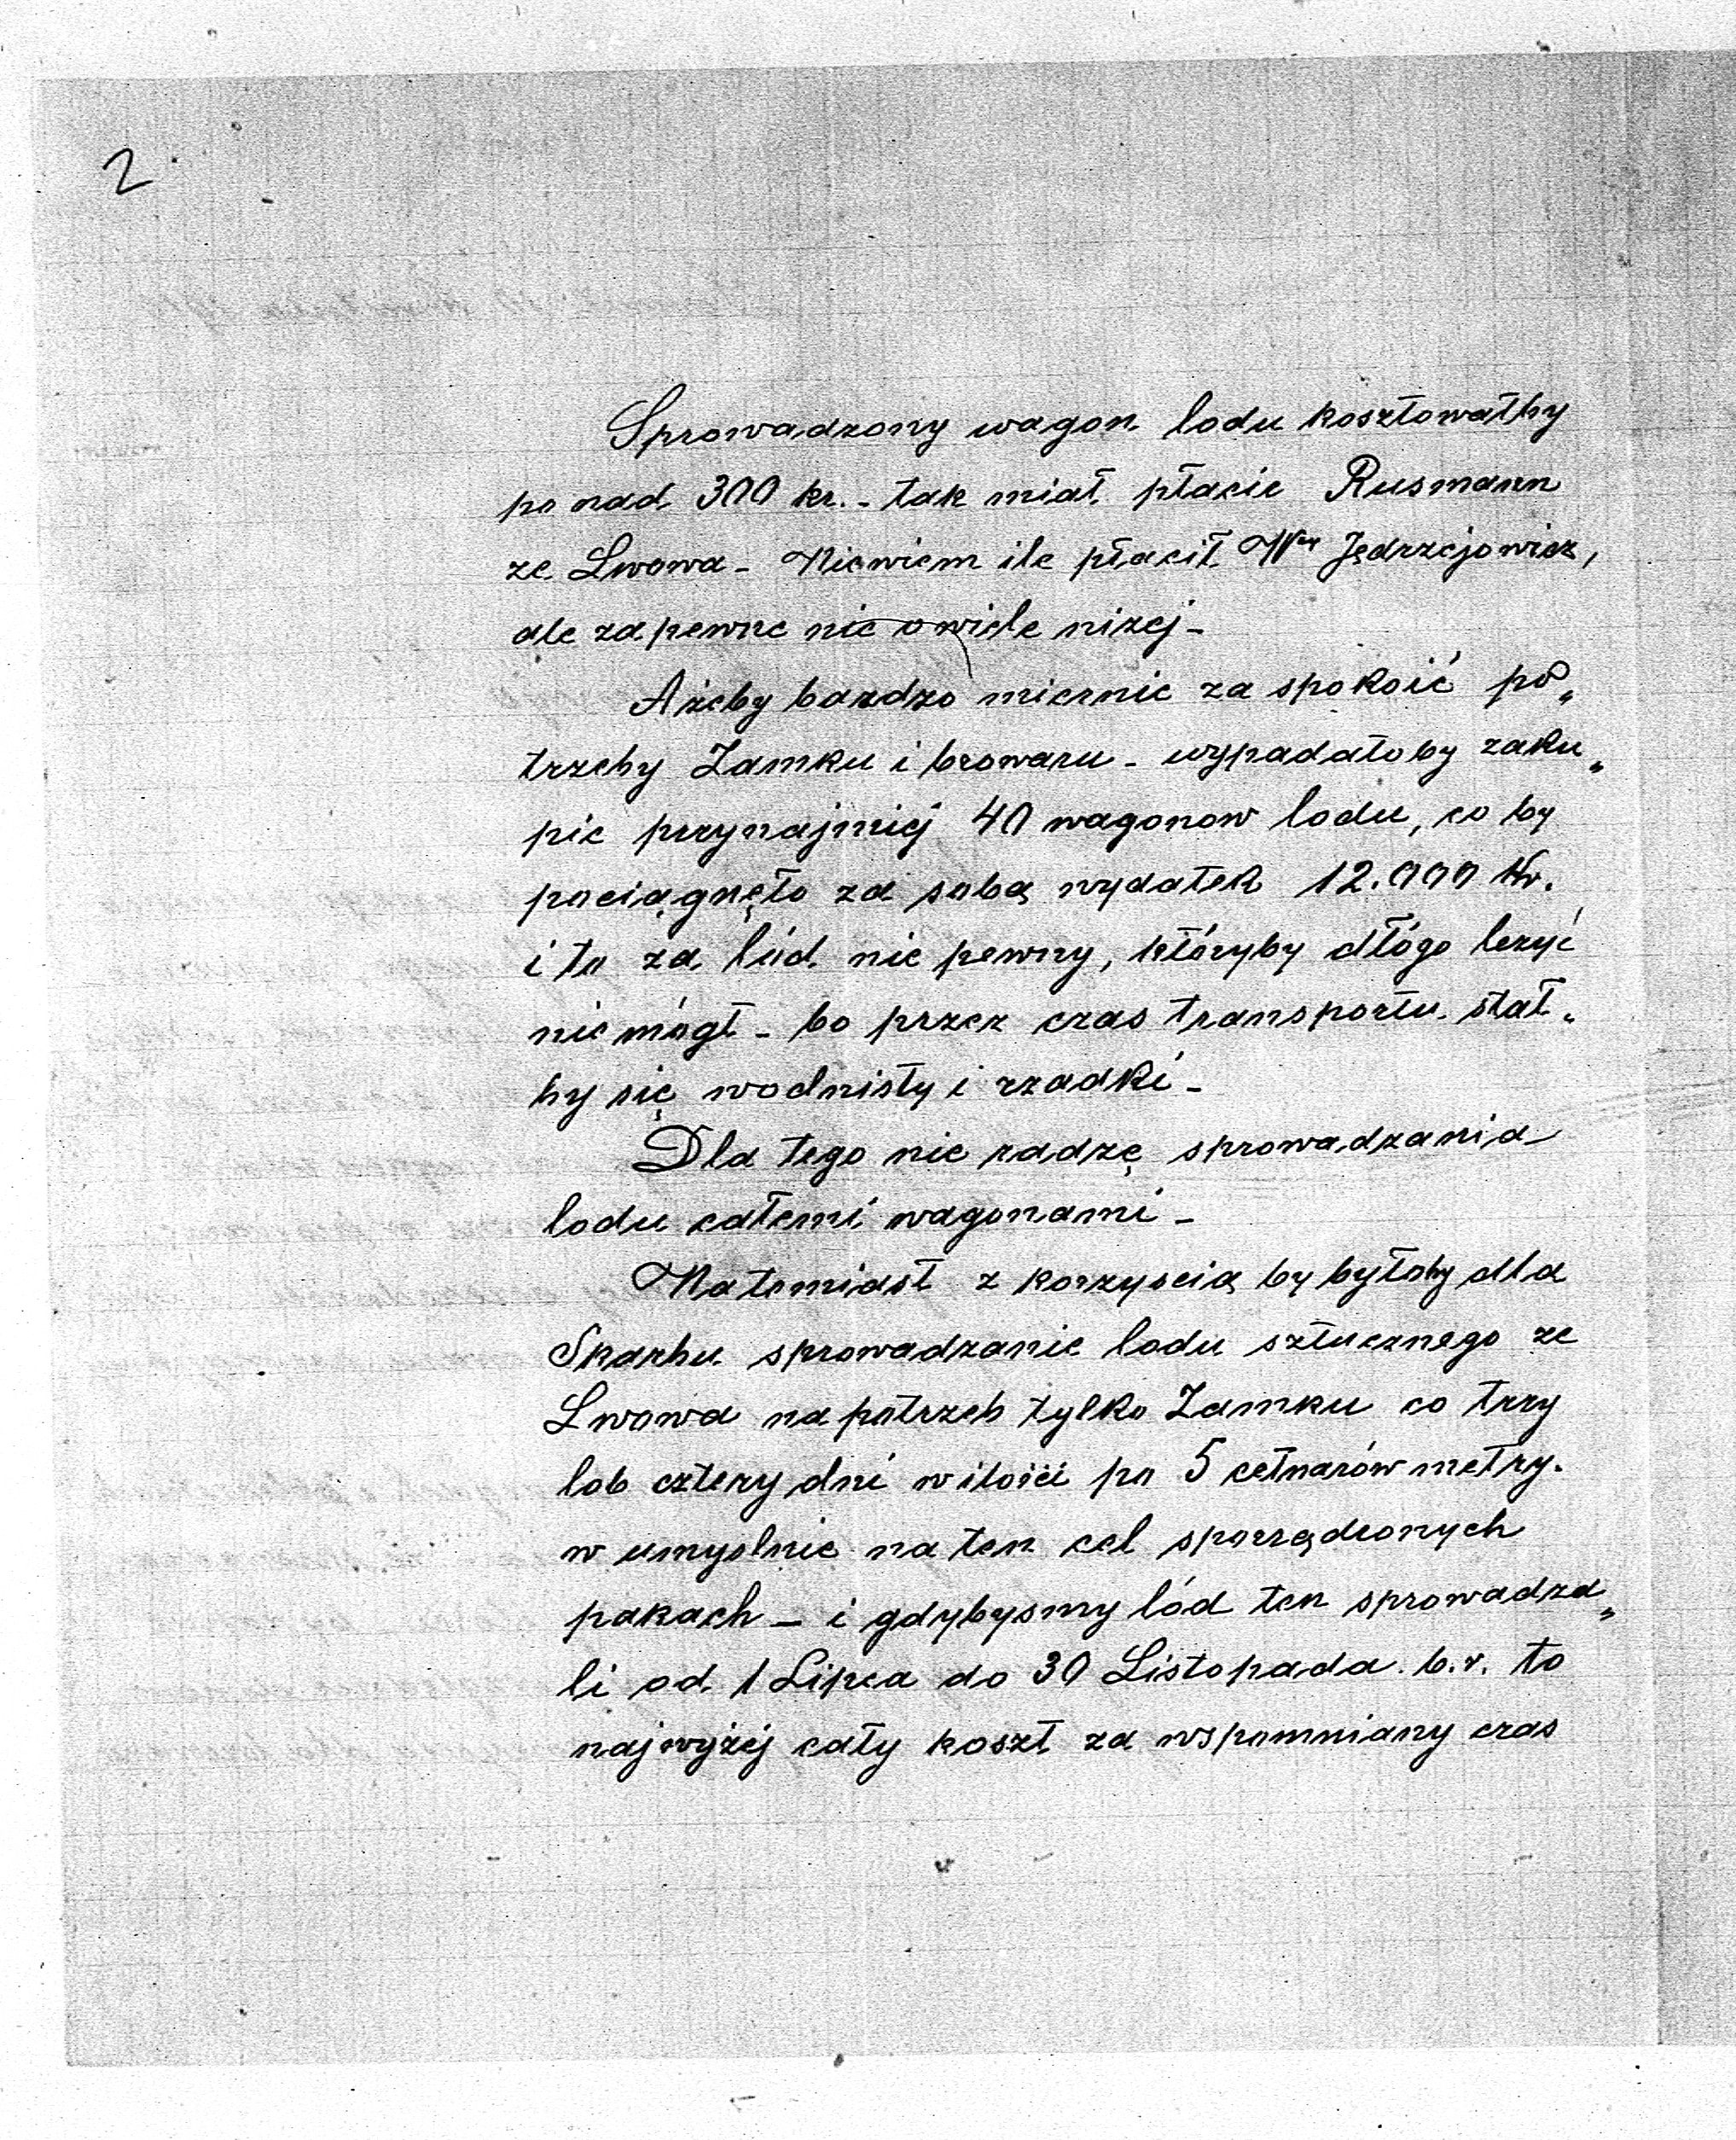 2
Sprowadzony wagon lodu kosztowałby
ponad 300 kr. - tak miał płacić Rusmann
ze Lwowa - Niewiem ile płacił Wny Jędrzejowicz,
ale zapewne nie o wiele niżej -
Ażeby bardzo miernie za spokoić po„
trzeby Zamku i browaru - wypadałoby zaku„
pić przynajmniej 40 wagonow lodu, co by
pociągnęło za sobą wydatek 12.000 Kr.
i to za lód nie pewny, któryby dłógo leżyć
nie mógł - bo przez czas transportu stał„
by się wodnisty i rzadki -
Dla tego nie radzę sprowadzania
lodu całemi wagonami -
Natomiast z korzyscią by byłoby dla
Skarbu sprowadzanie lodu sztucznego ze
Lwowa na potrzeb tylko Zamku co trzy
lob cztery dni w ilości po 5 cetnarów metry.
w umyslnie na ten cel sporządzonych
pakach - i gdybysmy lód ten sprowadza„
li od 1 Lipca do 30 Listopada b.r. to
najwyżej cały koszt za wspomniany czas